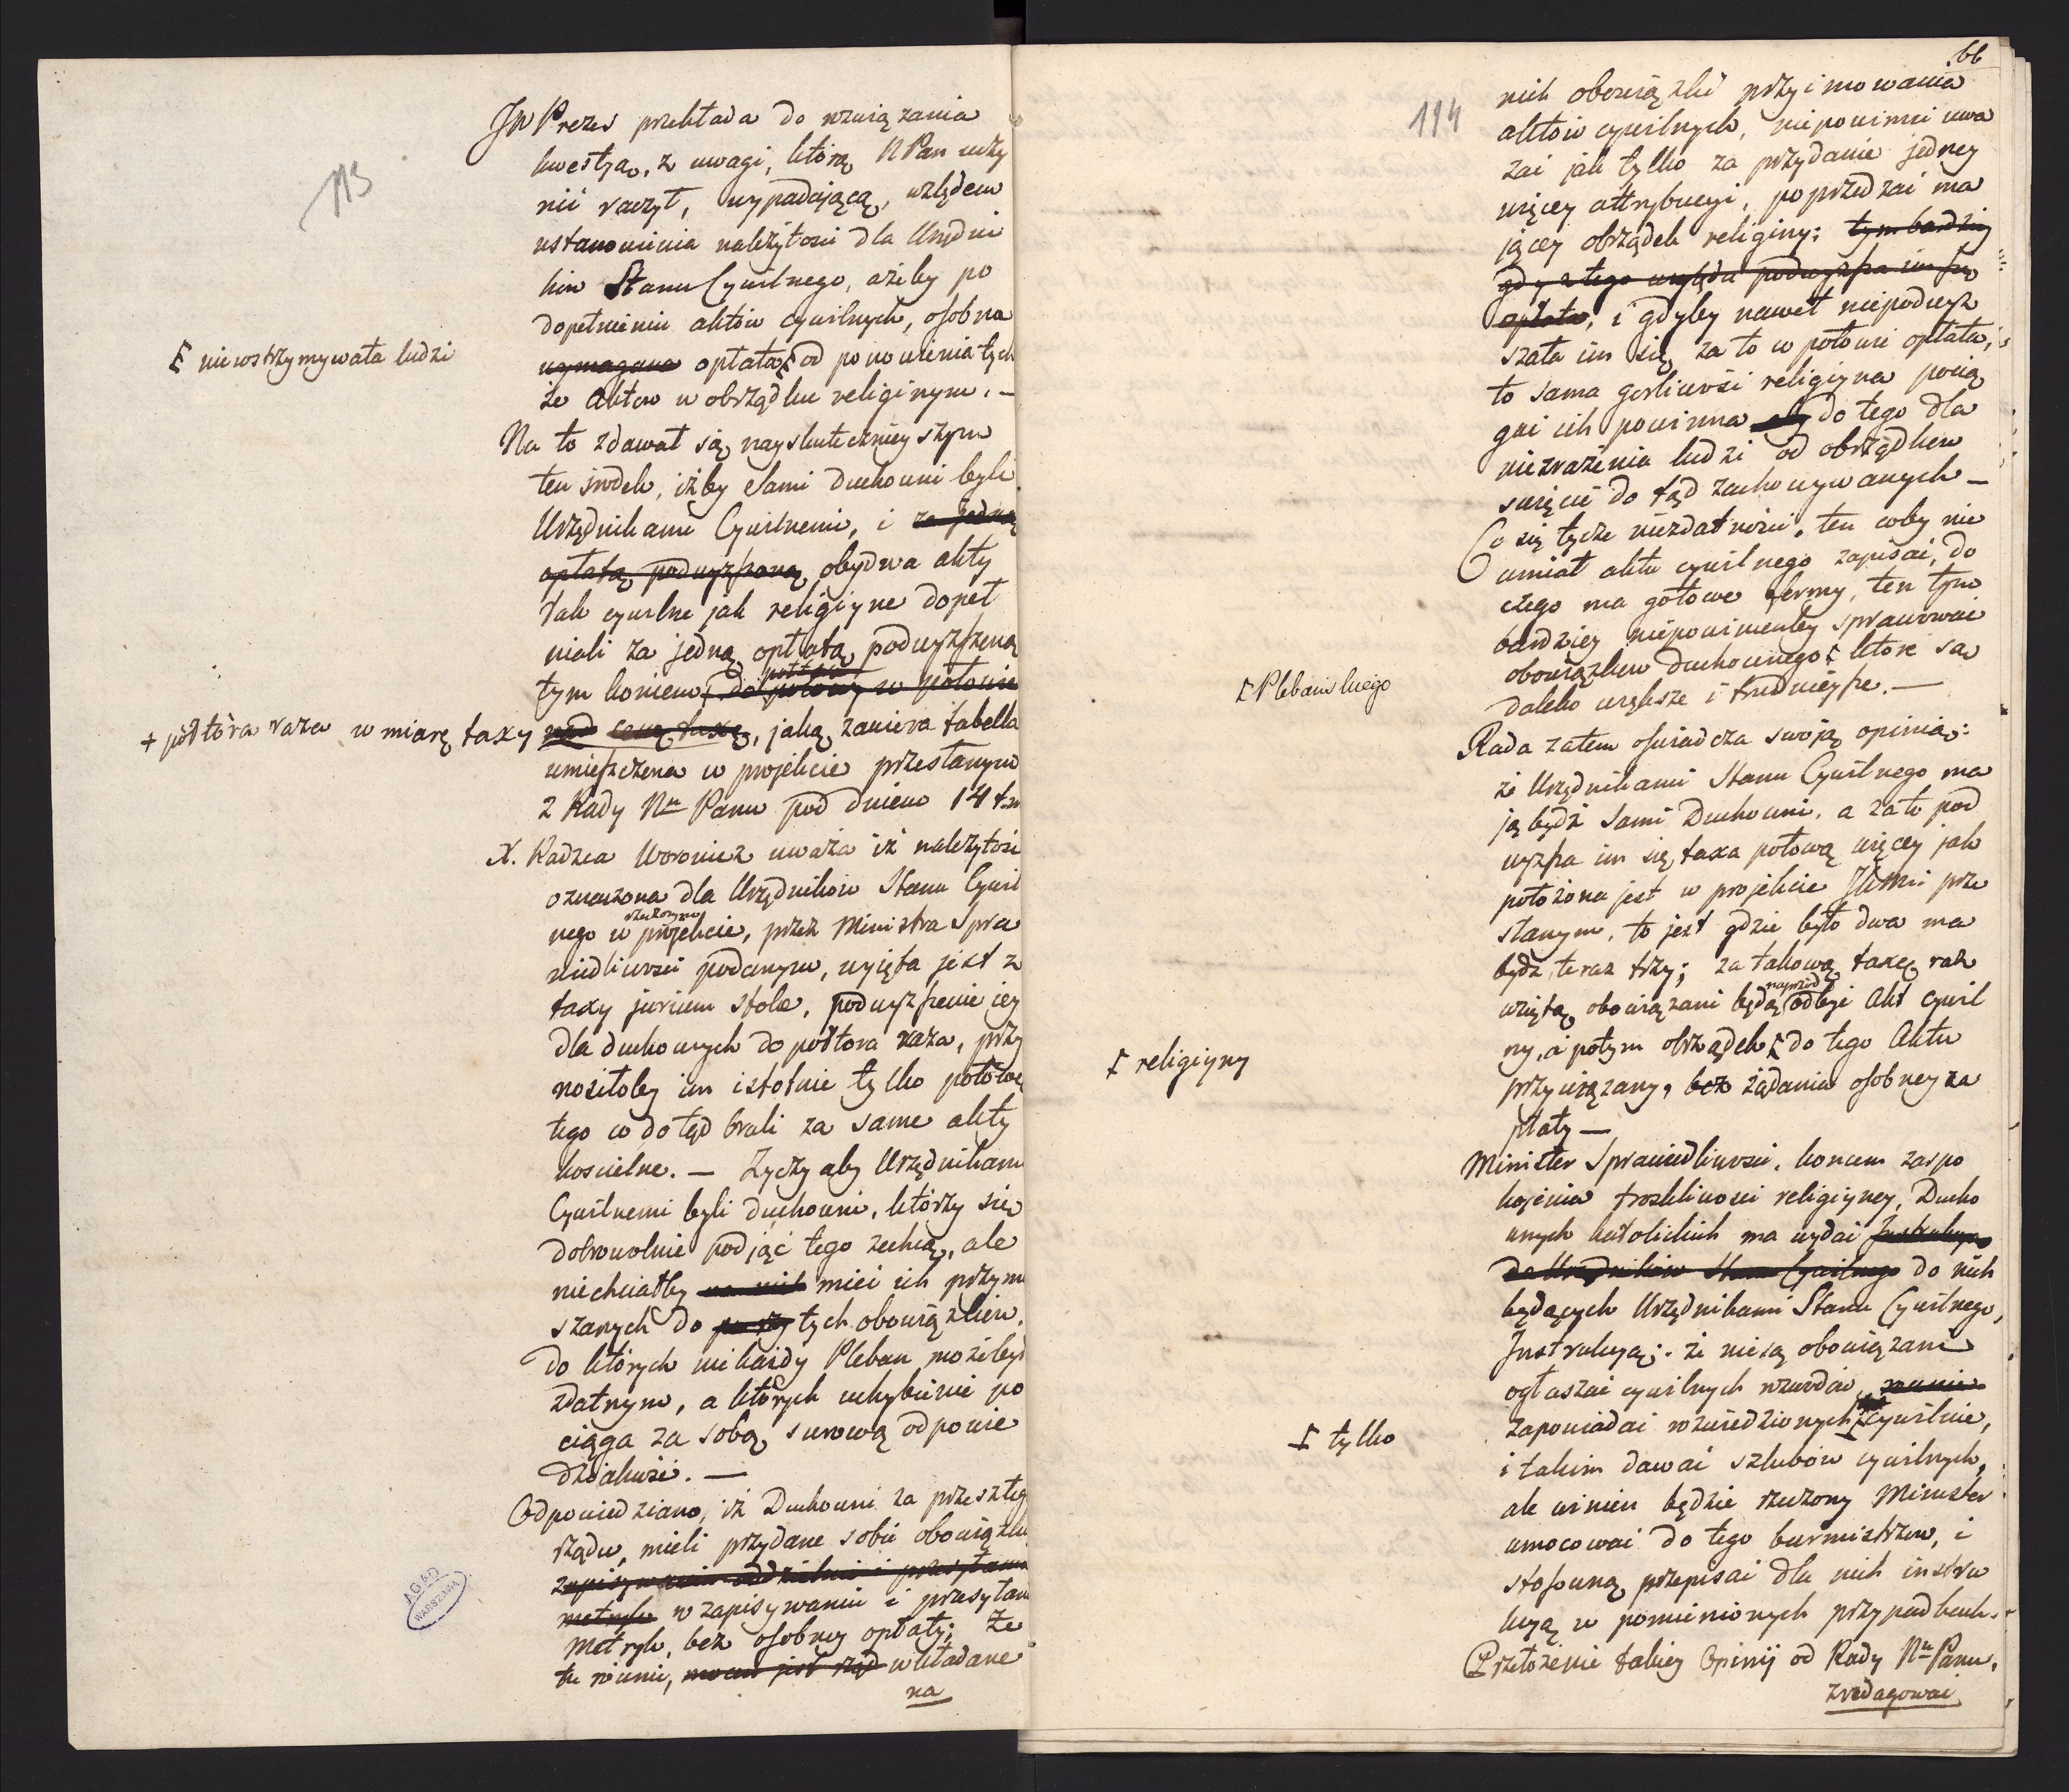 113
JW Prezes przekłada do rozwiązania
kwestyą, z uwagi, którą NPan uczy
nić raczył, wypadającą, względem
ustanowienia należytości dla Urzędni
ków Stanu Cywilnego, ażeby po
dopełnieniu aktów cywilnych, osobna
wymagana opłata od ponowienia tych
nie wstrzymywała ludzi
że Aktów w obrządku religinym. —
Na to zdawał się nayskutecznieyszym
ten środek, iżby Sami Duchowni byli
Urzędnikami Cywilnemi, i za jedną
opłatą podwyższoną obydwa akty
tak cywilne jak religiyne dopeł
niali za jedną opłatą podwyższoną
tym końcem, do połowy w połowie
+ półtora raza w miarę taxy nad cenę taxę, jaką zawiera tabella
umieszczona w projekcie przesłanym
z Rady Nu Panu pod dniem 14 t.m
X. Radzca Woronicz uważa iż należytość
oznaczona dla Urzędników Stanu Cywil
rzeczonym
nego w projekcie, przez Ministra Spra
wiedliwości podanym, wyjęta jest z
taxy jurium stolæ, podwyższenie iey
dla duchownych do półtora raza, przy
nosiłoby im istotnie tylko połowę
tego co dotąd brali za same akty
kościelne. — Życzy aby Urzędnikami
Cywilnemi byli duchowni, którzy się
dobrowolnie podjąć tego zechcą, ale
niechciałby na nich mieć ich przymu
szanych do tych obowiązków,
do których niekażdy Pleban może być
zdatnym, a których uchybienie po
ciąga za sobą surową odpowie
dzialność. —
Odpowiedziano, iż Duchowni za przeszłego
rządu, mieli przydane sobie obowiązki
zapisywania oddzielnie i przesyłania
metryk w zapisywaniu i przesyłaniu
metryk, bez osobney opłaty; że
tu równie, mocen jest rząd wkładane
na
AGAD
WARSZAWA
66
114
nich obowiązki przyimowania
aktów cywilnych, niepowinni uwa
żać jak tylko za przydanie jedney
więcey attrybucyi, poprzedzać ma
jącey obrządek religiny; tym bardziey
gdy z tego względu podwyższa im się
opłata; i gdyby nawet niepodwyż
szała im się za to w połowie opłata,
to sama gorliwość religiyna pocią
gać ich powinna do tego dla
niezrażenia ludzi od obrządków
święcie dotąd zachowywanych —
Co się tycze niezdatności, ten coby nie
umiał aktu cywilnego zapisać, do
czego ma gotowe formy, ten tym
bardziey niepowinienby sprawować
obowiązków duchownego które są
Plebańskiego
daleko większe i trudnieysze. —
Rada zatem oświadcza swoją opinią:
że Urzędnikami Stanu Cywilnego ma
ją bydź Sami Duchowni, a za to pod
wyższa im się taxa połową więcey jak
położona jest w projekcie JKMci prze
słanym, to jest gdzie było dwa ma
bydź teraz trzy; za takową taxę raz
najprzód
wziętą, obowiązani będą odbyć Akt cywil
ny, a potym obrządek do tego Aktu
religiyny
przywiązany, bez żądania osobney za
płaty —
Minister Sprawiedliwości, końcem zaspo
kojenia troskliwości religiyney, Ducho
wnych katolickich ma wydać Instrukcyą
do Urzędników Stanu Cywilnego do nich
będących Urzędnikami Stanu Cywilnego,
Instrukcyą: że niesą obowiązani
ogłaszać cywilnych rozwodów,
zapowiadać rozwiedzionych cywilnie,
tylko
i takim dawać szlubów cywilnych,
ale winien będzie rzeczony Minister
umocować do tego burmistrzów, i
stosowną przepisać dla nich instru
kcyą w pomienionych przypadkach.
Przełożenie takiey Opinij od Rady Nu Panu,
zredagować